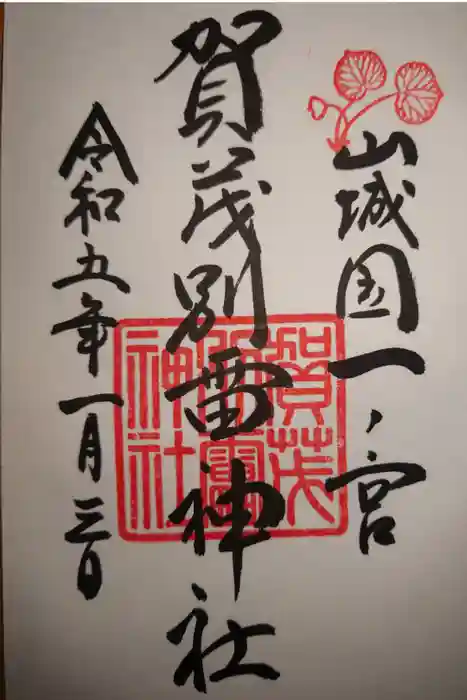 山城国一ノ宮
賀茂別雷神社
賀茂別雷神社
令和五年一月三日